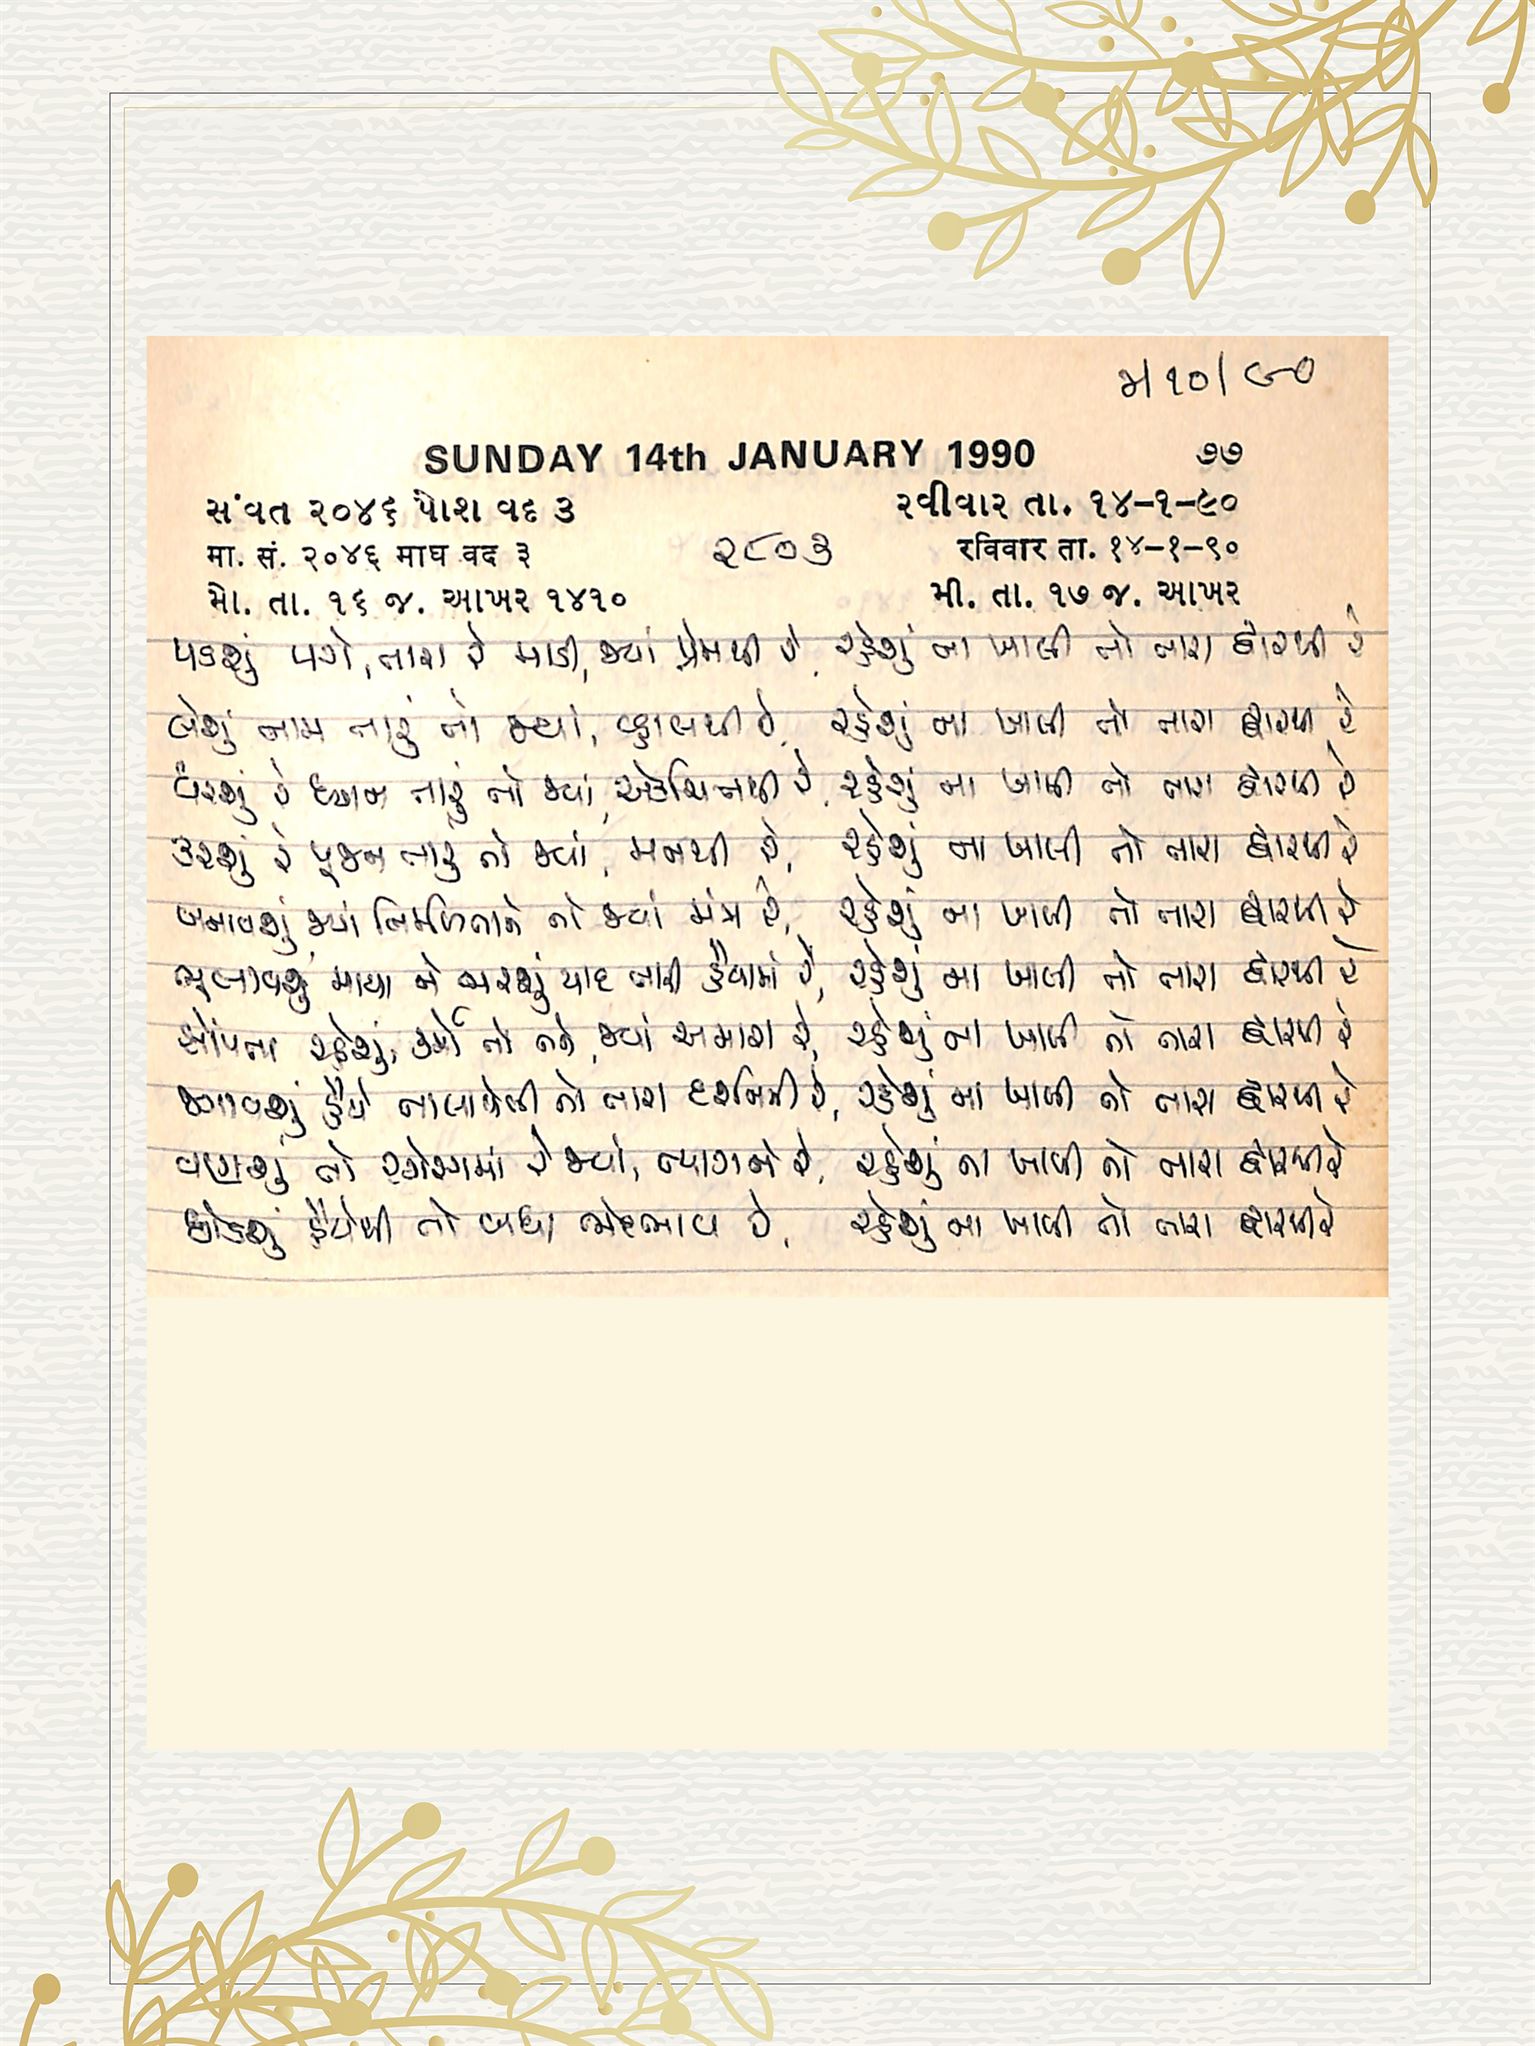 ૫/૧૦/૯૦
SUNDAY 14th JANUARY 1990 ૭૭
સંવત ૨૦૪૬ પોશ વદ ૩ રવીવાર તા. ૧૪-૧-૯૦
मा. सं. २०४६ माघ वद ३ ૨૮૦૩ रविवार ता. १४-१-९०
મો. તા. ૧૬ જ. આખર ૧૪૧૦ મી. તા. ૧૭ જ. આખર
પડશું પગે, તારા રે માડી, જ્યાં પ્રેમથી રે, રહેશું ના ખાલી તો તારા દ્વારથી રે
લેશું નામ તારું તો જ્યાં, વ્હાલથી રે, રહેશું ના ખાલી તો તારા દ્વારથી રે
ધરશું રે ધ્યાન તારું તો જ્યાં, એકચિત્તથી રે, રહેશું ના ખાલી તો તારા દ્વારથી રે
કરશું રે પૂજન તારું તો જ્યાં, મનથી રે, રહેશું ના ખાલી તો તારા દ્વારથી રે
બનાવશું જ્યાં નિર્મળતાને તો જ્યાં મંત્ર રે, રહેશું ના ખાલી તો તારા દ્વારથી રે
ભૂલાવશું માયા ને ભરશું યાદ તારી હૈયામાં રે, રહેશું ના ખાલી તો તારા દ્વારથી રે
સોંપતા રહેશું, કર્મો તો તને, જ્યાં અમારા રે, રહેશું ના ખાલી તો તારા દ્વારથી રે
જગાવશું હૈયે તાલાવેલી તો તારા દર્શનની રે, રહેશું ના ખાલી તો તારા દ્વારથી રે
વણશું તો રગેરગમાં રે જ્યાં, ત્યાગને રે, રહેશું ના ખાલી તો તારા દ્વારથી રે
છોડશું હૈયેથી તો બધા ભેદભાવ રે, રહેશું ના ખાલી તો તારા દ્વારથી રે